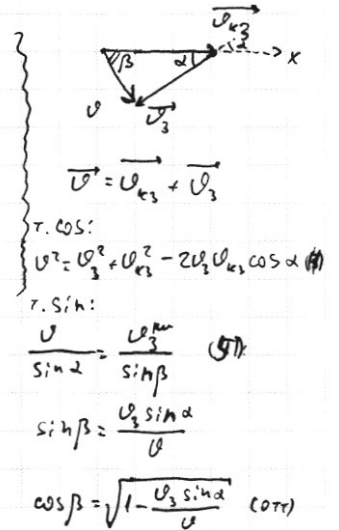 v⃗кз
β α α x
v v⃗з
v⃗ = v⃗кз + v⃗з
т. cos:
v² = vз² + vкз² - 2vз vкз cos α
т. sin:
v/sin α = vз/sin β
sin β = vз sin α/v
cos β = √(1 - vз sin α/v) (отт)